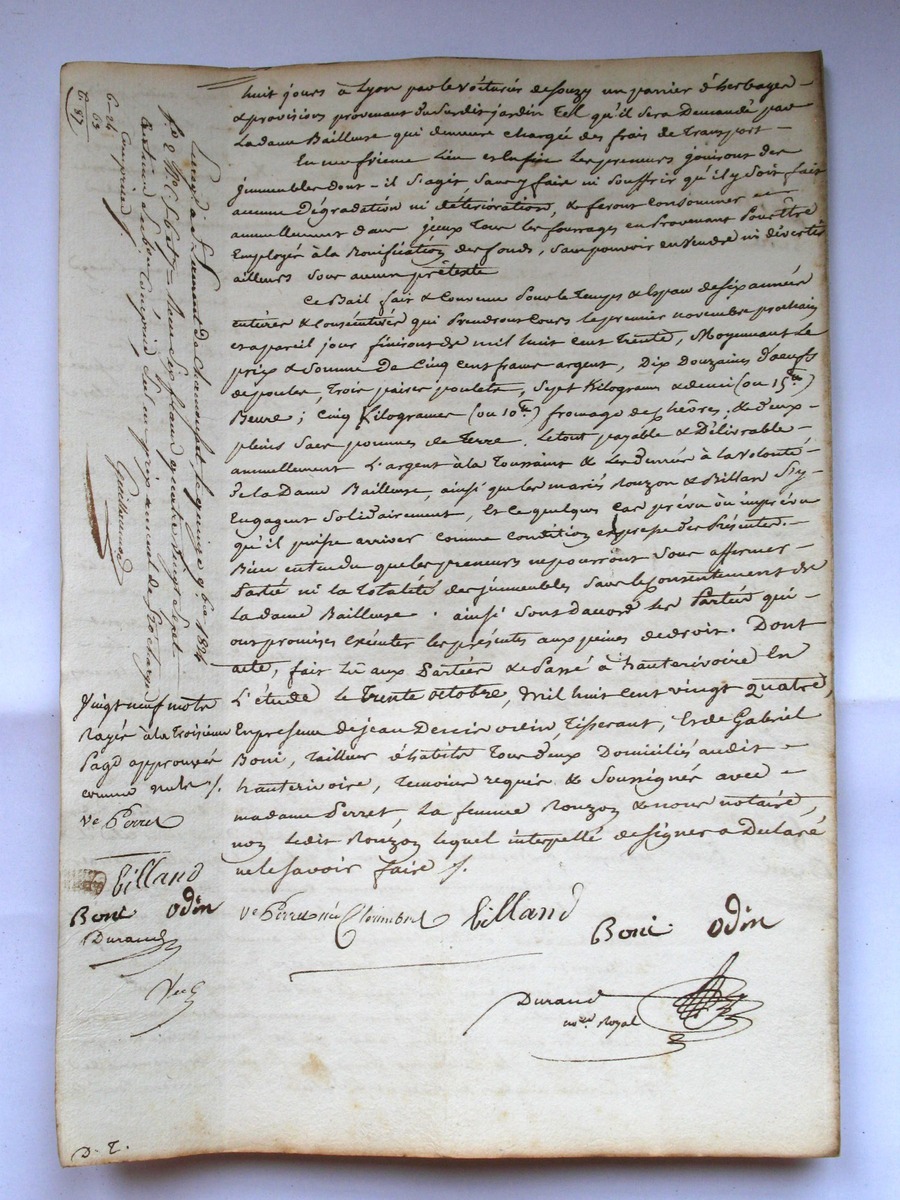 huit jours à Lyon par le voiturier de Souzy un pannier d'herbages
& provisions provenant du susdit jardin tel qu'il sera Demandé par
La dame Bailleuse qui demeure chargée des frais de Transport -
En neufvieme Lieu et Enfin Les preneurs jouiront des
jmmeubles dont il S'agit Sans y faire ni Souffrir qu'il y Soit fait
aucune Dégradation ni détérioration, & feront Consommer
annuellement dans jceux Tous les fourrages en Provenant Pour Être
Employés à la Bonification des fonds, Sans pouvoir en vendre ni divertir
ailleurs Sous aucun prétexte
Ce Bail fait & Convenu Pour le Temps & Espace de Six années
entières & Consécutives qui Prendront Cours le premier novembre prochain
et à pareil jour finiront de mil huit Cent Trente, Moyennant le
prix & Somme De Cinq Cent francs argent, Dix Douzaines d'oeufs
de poules, Trois paires poulets, Sept Kilogrames & demi (ou 15 ttes)
Beure ; Cinq Kilogrames (ou 10 ttes) fromage de chèvres, & deux
pleins Sacs pommes de Terre. Le tout payable & Délivrable
annuellement L'argent à la Toussaint & Les Denrées à la Volonté
de la Dame Bailleuse, ainsi que les mariés Rouzon & Billan S'y
Engagent Solidairement, Et Ce quelques Cas prévu où imprévu
qu'il puisse arriver Comme Condition expresse des Présentes. -
Bien entendu que les preneurs ne pourront Sous affermer
Partie ni la Totalité des jmmeubles Sans le Consentement de
La dame Bailleuse. ainsi Sont D'accord Les Parties qui
ont promises exécuter les présentes aux peines de droit. Dont
acte, fait Lu aux Parties & Passé à hauterivoire En
L'étude le Trente octobre, Mil huit Cent vingt Quatre,
En présence de jean Denis odin, Tisserant, Et de Gabriel
Boni, Tailleur d'habits Tous deux Domiciliés audit
hauterivoire, Temoins requis & Soussignés avec
madame Perret, La femme Rouzon & nous notaire,
non Ledit Rouzon lequel interpellé de Signer a Déclaré
ne le Savoir faire /.
Ve Perret née billand
Boni Odin
Durand
nre Royal
Vingt neuf mots
Rayés à la Troisième
Page approuvés
comme nuls /.
Ve Perret
billand
Boni Odin
Durand
Enreg. à St Laurent de Chamousset, le quinze 9bre 1824
fo 2
Reçu Six francs quatre vingt Sept
Guillermain
6-24
63
6-87
D. T.